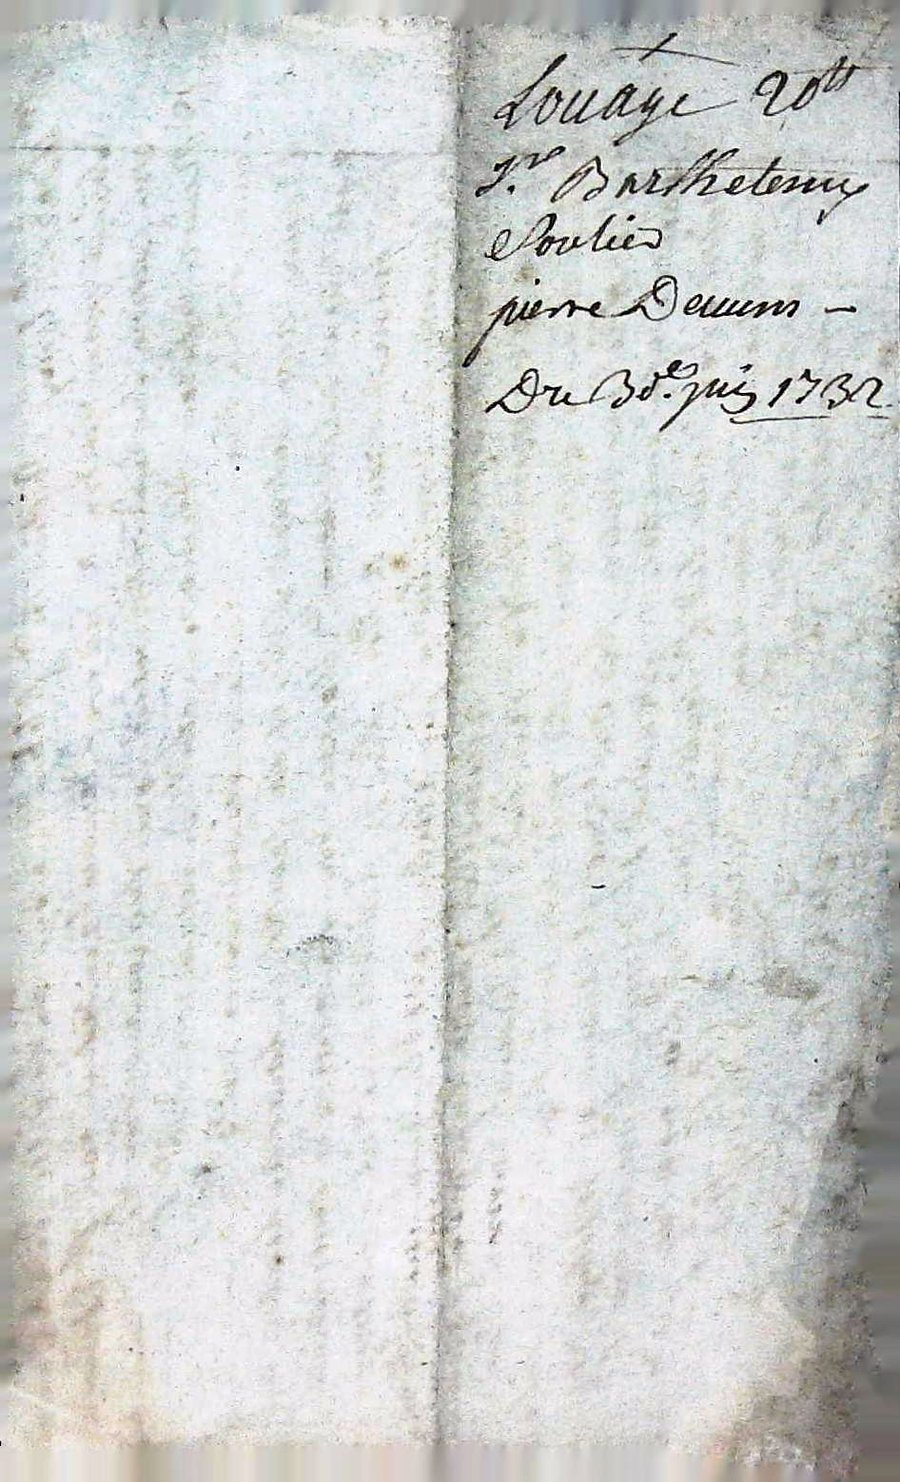 Louage 20tt
Sr Barthelemy
Soulier
pierre
Du 3de juin 1732